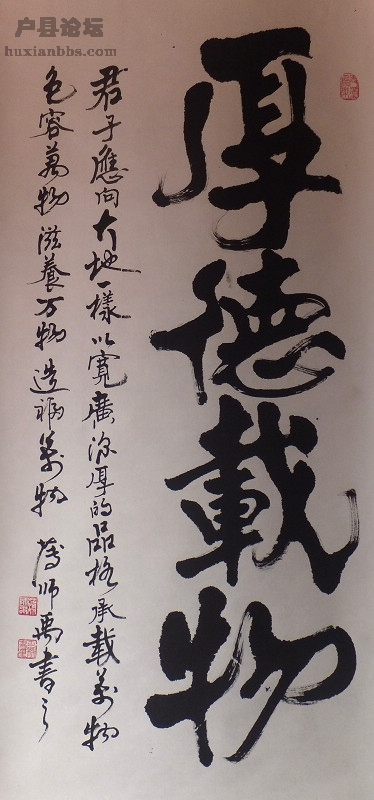 户县论坛
huxianbbs.com
厚德載物
君子應向大地一樣以寬廣深厚的品格承載萬物
包容萬物滋養万物造福萬物 师禹書之